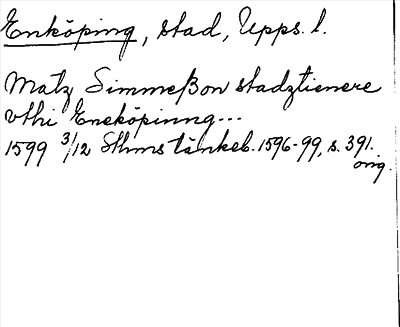 Enköping, stad, Upps. l.
Matz Simmeßon stadztienere
vthi Eneköpinng...
1599 3/12 Sthms tänkeb. 1596-99, s. 391.
orig.